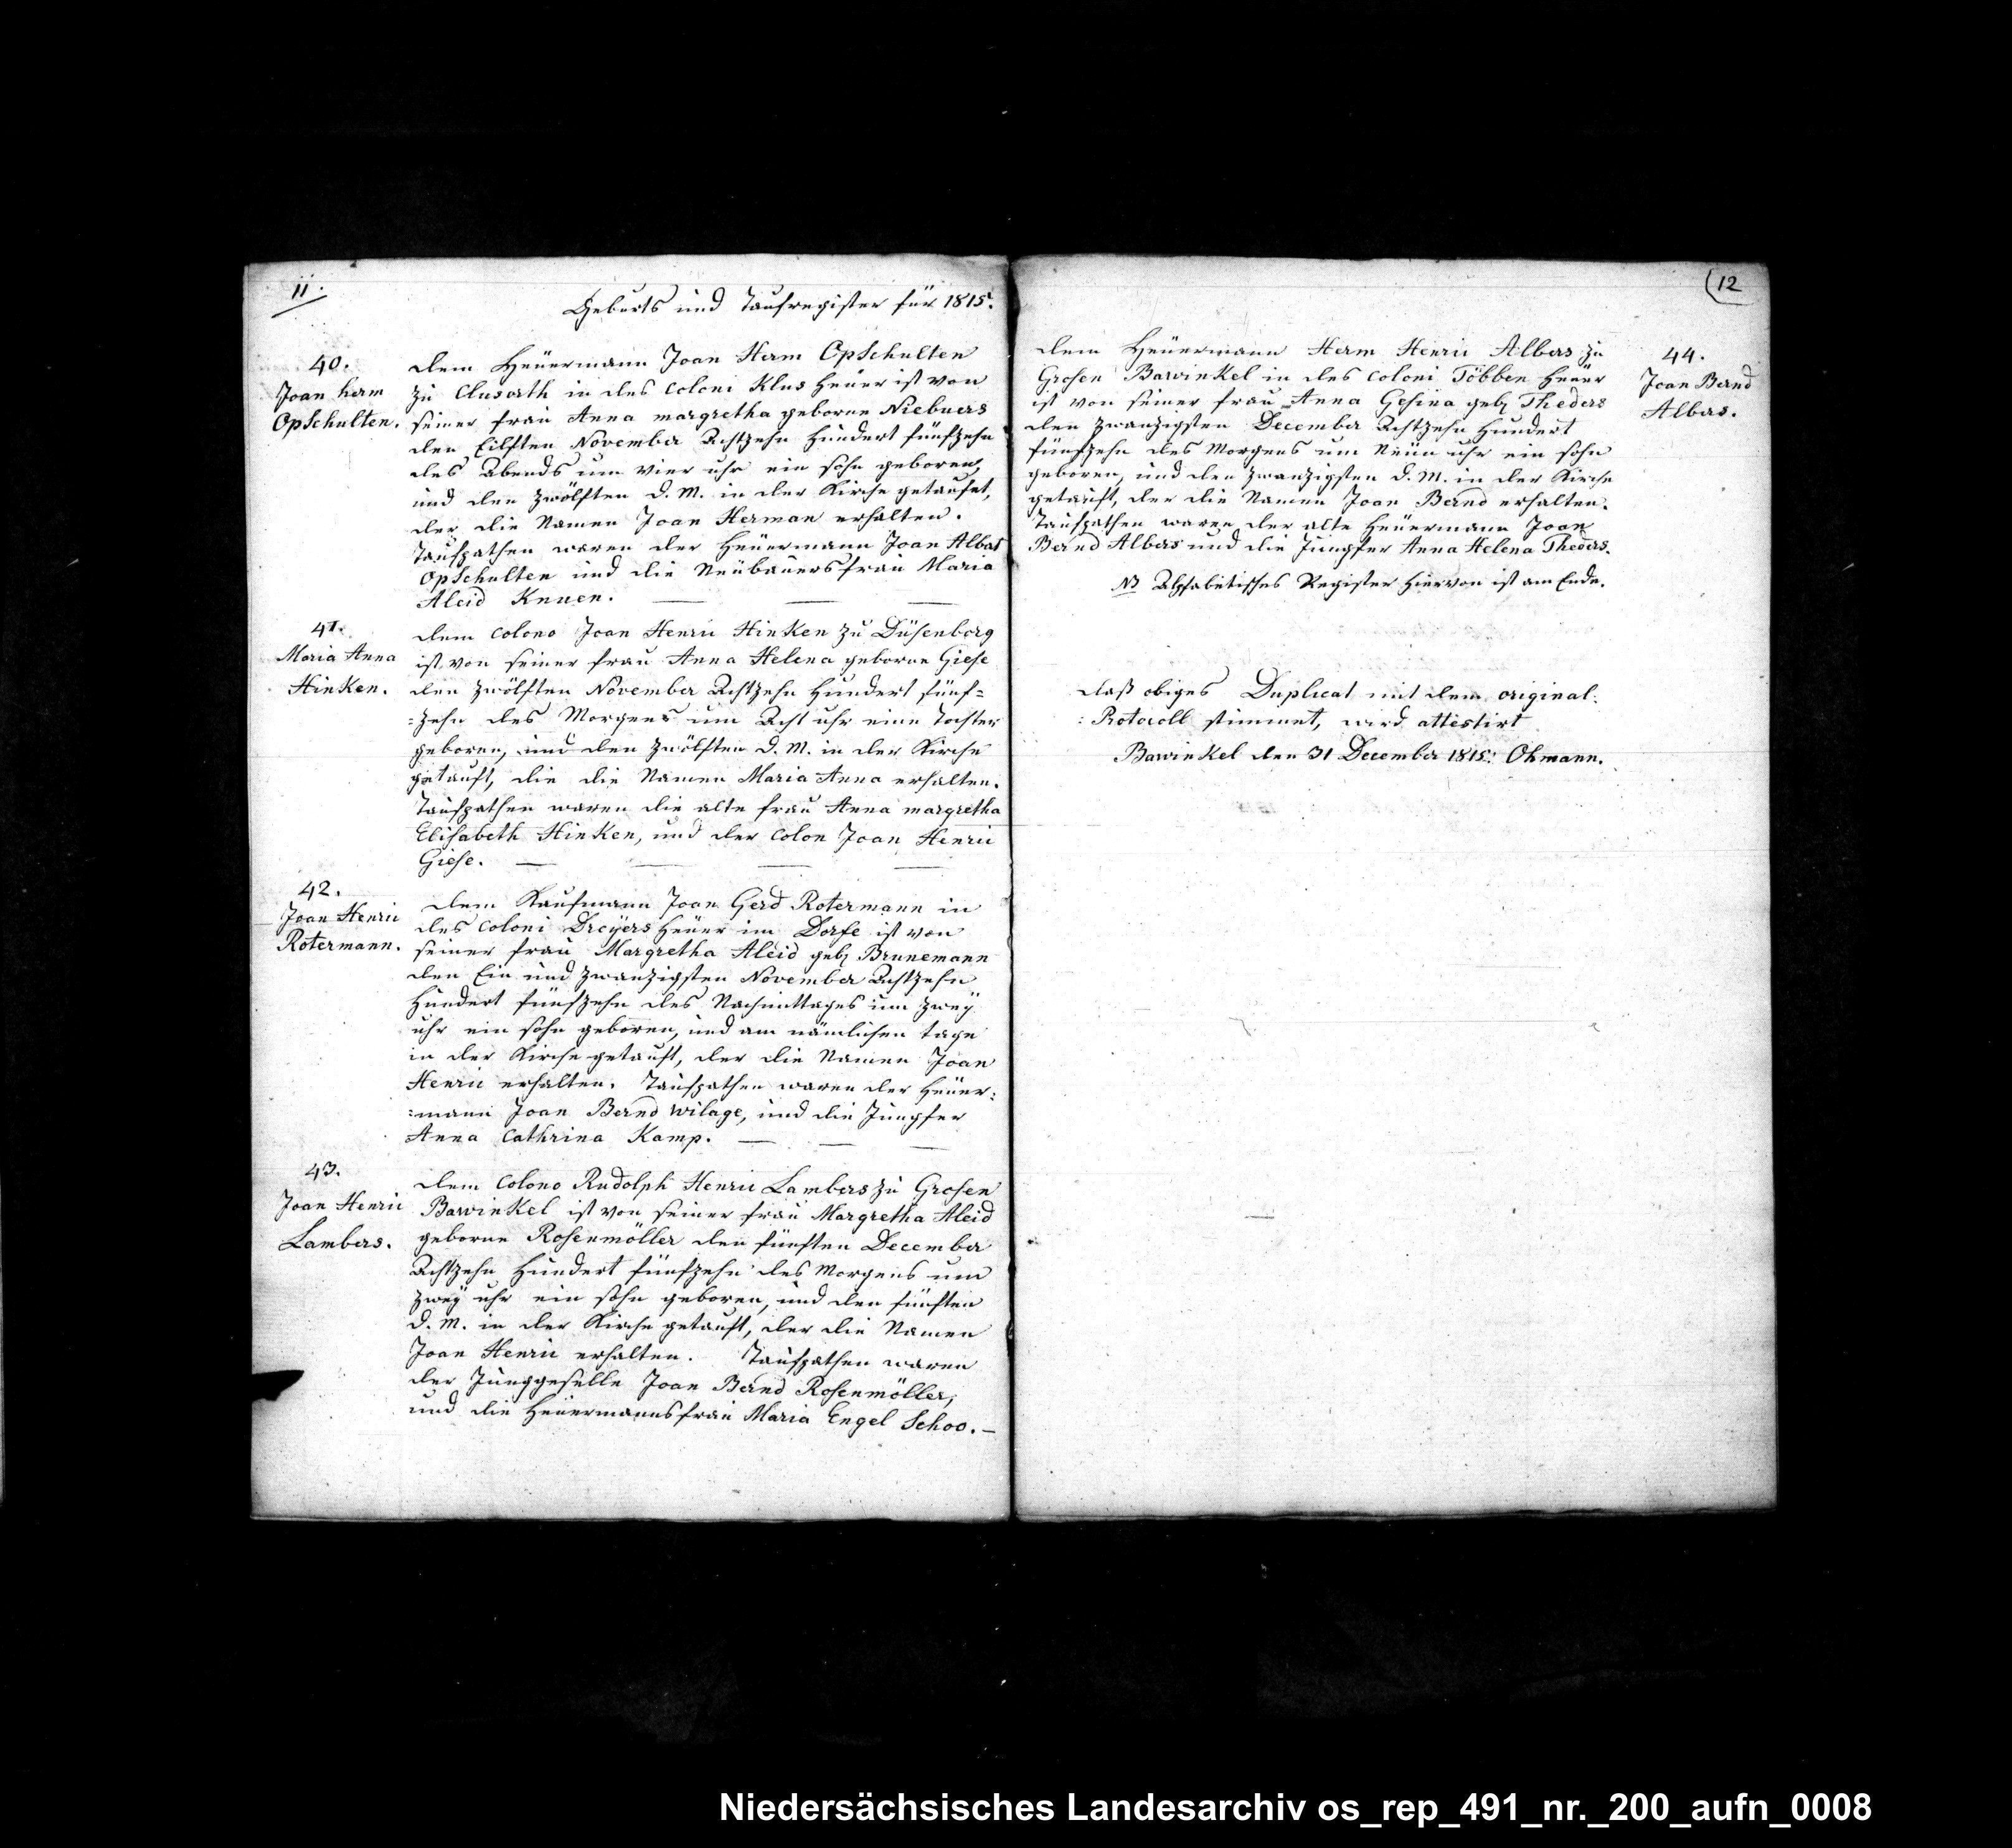 11.
Geburts und Taufregister für 1815.
40.
Joan herm
OpSchulten.
dem Heüermann Joan Herm OpSchulten
zu Clusorth in des Coloni Klus Heüer ist von
seiner frau Anna margretha geborne Niebuers
den Eilften November Achtzehn Hundert fünfzehn
des Abends um vier uhr ein sohn geboren,
und den zwölften d. M. in der Kirche getaufet,
der die Namen Joan Herman erhalten.
Taufpathen waren der Heüermann Joan Albat
OpSchulten und die Neübauersfrau Maria
Aleid Knuen.
41.
Maria Anna
Hinken.
dem Colono Joan Henric Hinken zu Düsenborg
ist von seiner frau Anna Helena geborne Giese
den zwölften November Achtzehn Hundert fünf=
=zehn des Morgens um Acht uhr eine Tochter
geboren, und den zwölften d. M. in der Kirche
getauft, die die Namen Maria Anna erhalten.
Taufpathen waren die alte frau Anna margretha
Elisabeth Hinken, und der Colon Joan Henric
Giese.
42.
Joan Henric
Rotermann.
dem Kaufmann Joan Gerd Rotermann in
des Coloni Dreÿers Heüer im Dorfe ist von
seiner frau Margretha Aleid geb. Brunemann
den Ein und zwanzigsten November Achtzehn
Hundert fünfzehn des Nachmittages um zweÿ
uhr ein sohn geboren, und am nämlichen tage
in der Kirche getauft, der die Namen Joan
Henric erhalten. Taufpathen waren der Heüer=
=mann Joan Bernd Wilage, und die Jungfer
Anna Cathrina Kamp.
43.
Joan Henric
Lambers.
dem Colono Rudolph Henric Lambers zu Grosen
Bawinkel ist von seiner frau Margretha Aleid
geborne Rosenmöller den fünften December
Achtzehn Hundert fünfzehn des Morgens um
zweÿ uhr ein sohn geboren, und den fünften
d. M. in der Kirche getauft, der die Namen
Joan Henric erhalten. Taufpathen waren
der Junggeselle Joan Bernd Rosenmöller,
und die Heüermannsfrau Maria Engel Schoo.
12
44.
Joan Bernd
Albers.
dem Heüermann Herm Henric Albers zu
Grosen Bawinkel in des Coloni Többen Heüer
ist von seiner frau Anna Gesina geb. Theders
den zwanzigsten December Achtzehn Hundert
fünfzehn des Morgens um Neün uhr ein sohn
geboren, und den zwanzigsten d. M. in der Kirche
getauft, der die Namen Joan Bernd erhalten.
Taufpathen waren der alte Heüermann Joan
Bernd Albers und die Jungfer Anna Helena Theders.
NB Alphabetisches Register hiervon ist am Ende.
daß obiges Duplicat mit dem original=
=Protocoll stimmet, wird attestirt
Bawinkel den 31 December 1815. Ohmann.
Niedersächsisches Landesarchiv os_rep_491_nr._200_aufn_0008